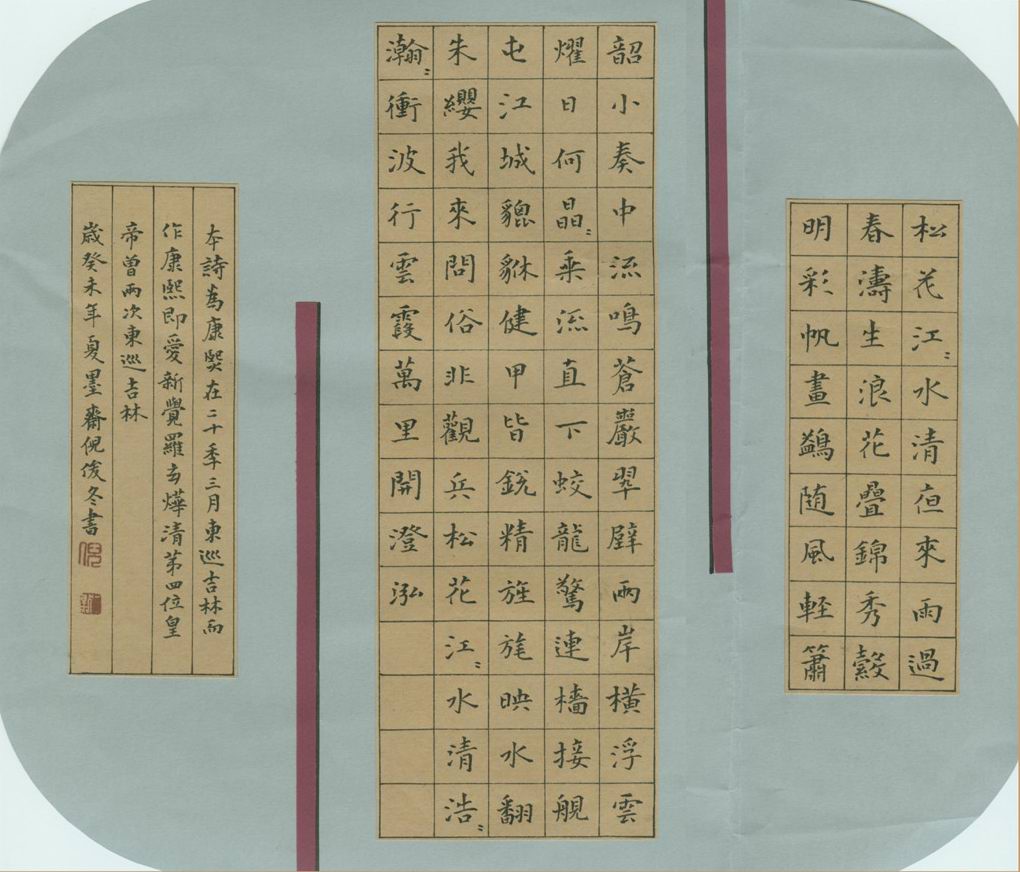 松花江〻水清亱來雨過
春濤生浪花疊錦秀縠
明彩帆畫鷁随風軽簫
韶小奏中流鳴蒼巖翠壁兩岸橫浮雲
耀日何晶〻乗流直下蛟龍驚連檣接舰
屯江城貔貅健甲皆銳精旌旄映水翻
朱纓我來問俗非觀兵松花江〻水清浩〻
瀚〻衝波行雲霞萬里開澄泓
本詩為康熙在二十季三月東巡吉林而
作康熙即愛新覺羅玄燁清第四位皇
帝曾兩次東巡吉林
歲癸未年夏墨齋倪俊冬書